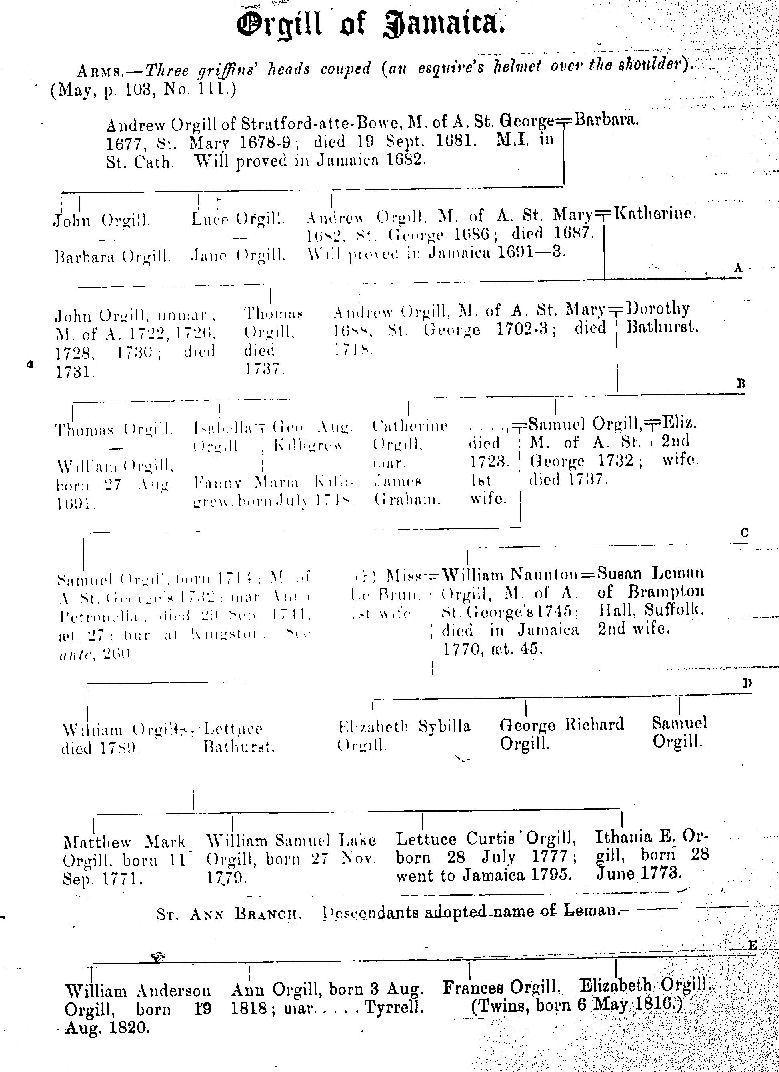 Orgill of Jamaica.
ARMS.—Three griffins' heads couped (an esquire's helmet over the shoulder).
(May, p. 103, No. 111.)
Andrew Orgill of Stratford-atte-Bowe, M. of A. St. George=Barbara.
1677, St. Mary 1678-9; died 19 Sept. 1681. M.I. in
St. Cath. Will proved in Jamaica 1682.
John Orgill.
Barbara Orgill.
Luce Orgill.
Jane Orgill.
Andrew Orgill, M. of A. St. Mary=Katherine.
1682, St. George 1686; died 1687.
Will proved in Jamaica 1691—3.
A
John Orgill, unmar.,
M. of A. 1722, 1726,
1728, 1730; died
1731.
Thomas
Orgill,
died
1737.
Andrew Orgill, M. of A. St. Mary=Dorothy
1688, St. George 1702-3; died Bathurst.
1718.
B
Thomas Orgill.
—
William Orgill,
born 27 Aug
1691.
Isabella=Geo. Aug.
Orgill Killigrew
Fanny Maria Killi-
grew, born July 1718
Catherine
Orgill,
mar.
James
Graham.
. . . .,
died
1723.
1st
wife.
=Samuel Orgill,=Eliz.
M. of A. St. 2nd
George 1732; wife.
died 1737.
C
Samuel Orgill, born 1714; M. of
A. St. George's 1732; mar. Anna
Petronella, died 29 Sep. 1741,
æt 27; bur. at Kingston. See
ante, 260
Miss=William Naunton=Susan Leman
Le Brun, Orgill, M. of A. of Brampton
1st wife St. George's 1745; Hall, Suffolk.
died in Jamaica 2nd wife.
1770, æt. 45.
D
William Orgill=Lettuce
died 1789 Bathurst.
Elizabeth Sybilla
Orgill.
George Richard
Orgill.
Samuel
Orgill.
Matthew Mark
Orgill, born 11
Sep. 1771.
William Samuel Lake
Orgill, born 27 Nov.
1779.
Lettuce Curtis Orgill,
born 28 July 1777;
went to Jamaica 1795.
Ithania E. Or-
gill, born 28
June 1773.
ST. ANN BRANCH. Descendants adopted name of Leman.
E
William Anderson
Orgill, born 19
Aug. 1820.
Ann Orgill, born 3 Aug.
1818; mar. . . . . Tyrrell.
Frances Orgill. Elizabeth Orgill.
(Twins, born 6 May 1816.)